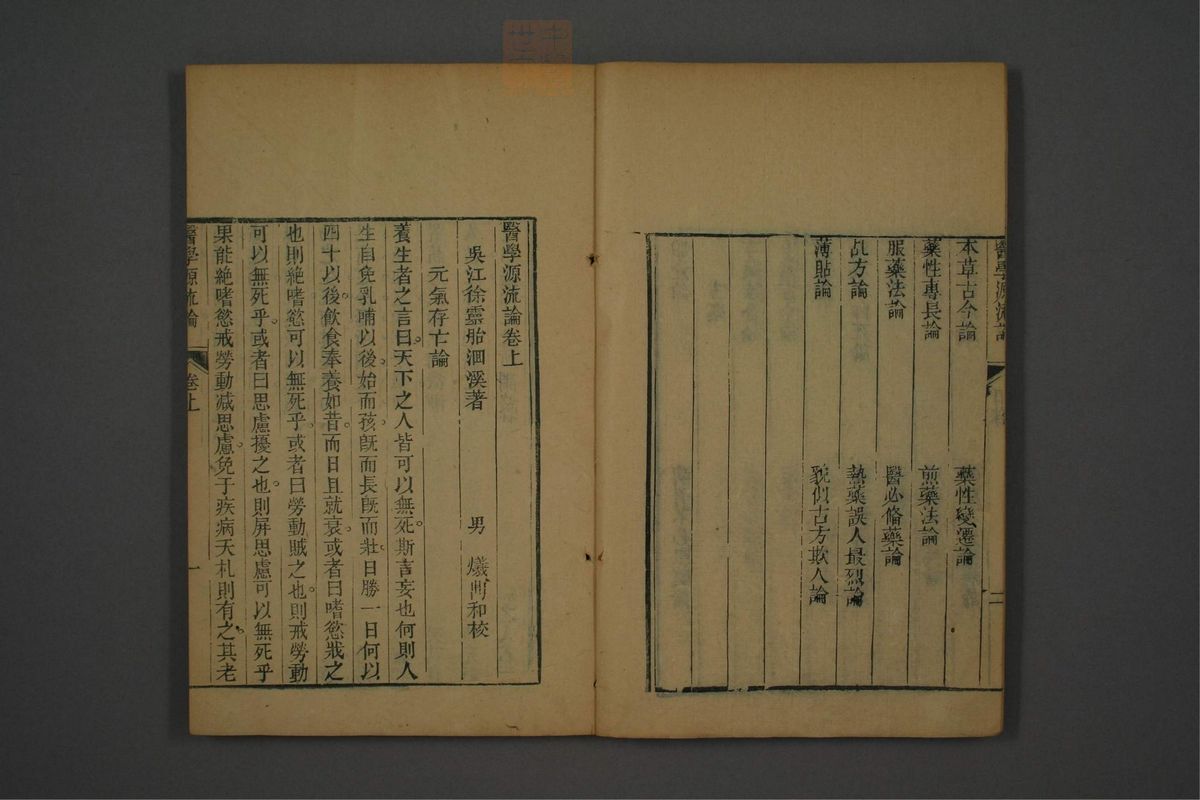 醫學源流論
二
本草古今論　藥性變遷論
藥性專長論　煎藥法論
服藥法論　醫必備藥論
乩方論　熱藥誤人最烈論
薄貼論　貌似古方欺人論
醫學源流論卷上
吳江徐靈胎洄溪著　男　爔鼎和校
元氣存亡論
養生者之言曰天下之人皆可以無死斯言妄也何則人
生自免乳哺以後始而孩旣而長旣而壯日勝一日何以
四十以後飲食奉養如昔而日且就衰或者曰嗜慾戕之
也則絶嗜慾可以無死乎或者曰勞動賊之也則戒勞動
可以無死乎或者曰思慮擾之也則屏思慮可以無死乎
果能絶嗜慾戒勞動減思慮免于疾病夭札則有之其老
醫學源流論
卷上
一